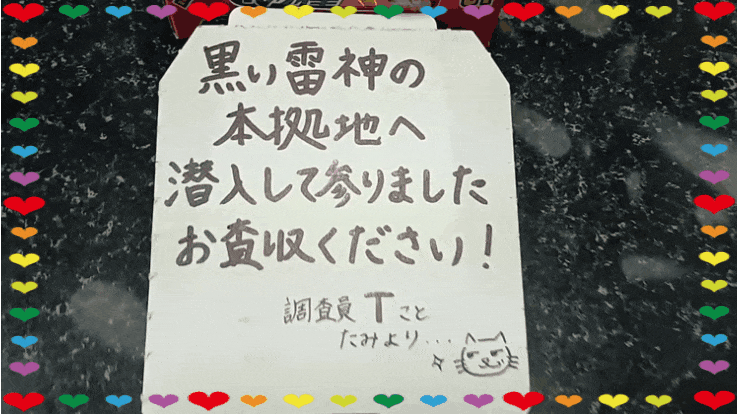 黒い雷神の
本拠地へ
潜入して参りました
お査収ください!
調査員Tこと
たみより...